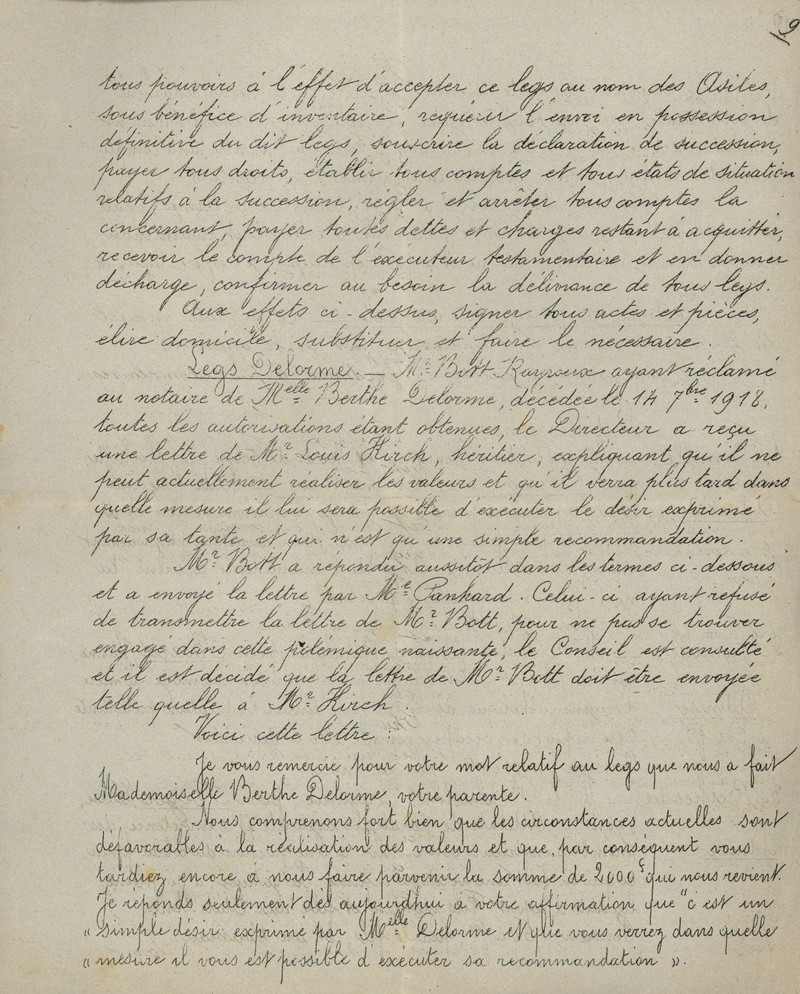 9
tous pouvoirs à l'effet d'accepter ce legs au nom des Asiles,
sous bénéfice d'inventaire, requérir l'envoi en possession
définitive du dit legs, souscrire la déclaration de succession,
payer tous droits, établir tous comptes et tous états de situation
relatifs à la succession, régler et arrêter tous comptes la
concernant, payer toutes dettes et charges restant à acquitter,
recevoir le compte de l'exécuteur testamentaire et en donner
décharge, confirmer au besoin la délivrance de tous legs.
Aux effets ci-dessus, signer tous actes et pièces,
élire domicile, substituer et faire le nécessaire.
Legs Delorme. — Mr Bott Rayroux ayant réclamé
au notaire de Melle Berthe Delorme, décédée le 14 7bre 1918,
toutes les autorisations étant obtenues, le Directeur a reçu
une lettre de Mr Louis Hirch, héritier, expliquant qu'il ne
peut actuellement réaliser les valeurs et qu'il verra plus tard dans
quelle mesure il lui sera possible d'exécuter le désir exprimé
par sa tante et qui n'est qu'une simple recommandation.
Mr Bott a répondu aussitôt dans les termes ci-dessous
et a envoyé la lettre par Me Pankard. Celui-ci ayant refusé
de transmettre la lettre de Mr Bott, pour ne pas se trouver
engagé dans cette polémique naissante, le Conseil est consulté
et il est décidé que la lettre de Mr Bott doit être envoyée
telle quelle à Mr Hirch.
Voici cette lettre :
Je vous remercie pour votre mot relatif au legs que nous a fait
Mademoiselle Berthe Delorme, votre parente.
Nous comprenons fort bien que les circonstances actuelles sont
défavorables à la réalisation des valeurs et que, par conséquent vous
tardiez encore à nous faire parvenir la somme de 2000 f qui nous revient.
Je réponds seulement dès aujourdhui à votre affirmation que "c'est un
" simple désir exprimé par Melle Delorme et que vous verrez dans quelle
" mesure il vous est possible d'exécuter sa recommandation ".